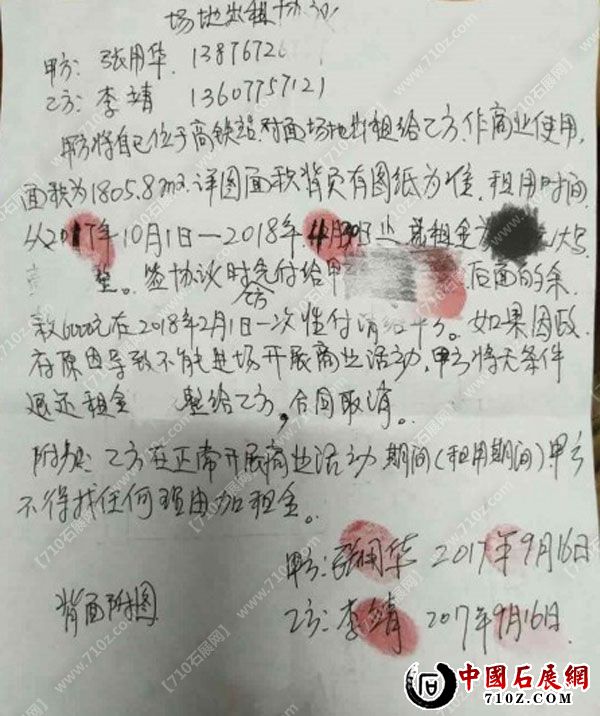 场地出租协议
甲方：张用华. 1387672
乙方：李靖 13607757121
甲方将自己位于高铁站对面场地出租给乙方.作商业使用,
面积为1805.8m².详图面积背页有图纸为准.租用时间
从2017年10月1日—2018年.4月30日止.总租金为 大写
整。签协议时乙方先付给甲 后面的余
款6000元在2018年2月1日一次性付清给甲方。如果因政
府原因导致不能进场开展商业活动,甲方将无条件
退还租金 整给乙方,合同取消。
附加：乙方在正常开展商业活动期间(租用期间).甲方
不得找任何理由加租金。
甲方：张用华 2017年9月16日
乙方：李靖 207年9月16日.
背面附图
中國石展網
710Z.COM
【710石展网】
www.710z.com